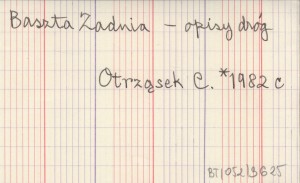 Baszta Zadnia – opisy dróg
Otrząsek C. *1982 c
BT/052/3625